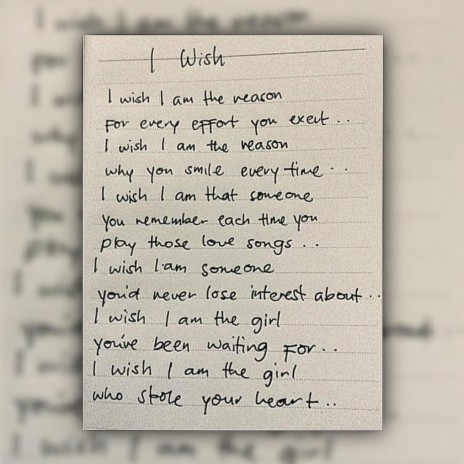 I Wish
I wish I am the reason
For every effort you exert..
I wish I am the reason
why you smile every time..
I wish I am that someone
you remember each time you
play those love songs..
I wish I am someone
you'd never lose interest about..
I wish I am the girl
you've been waiting for..
I wish I am the girl
who stole your heart..